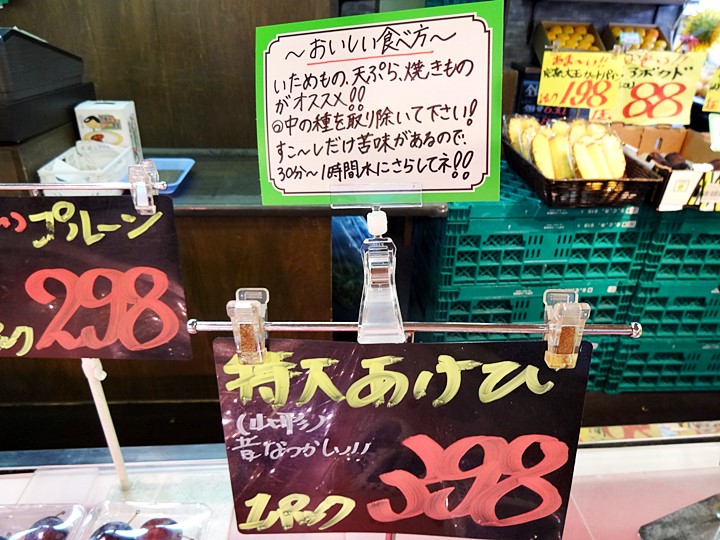 ～おいしい食べ方～
いためもの、天ぷら、焼きもの
がオススメ!!
◎中の種を取り除いて下さい!
すこ～しだけ苦味があるので、
30分～1時間水にさらしてネ!!
プルーン
298
特大あけび
(山形)
昔なつかしい!!
1パック
398
あま～い!!
198
アボカド
88